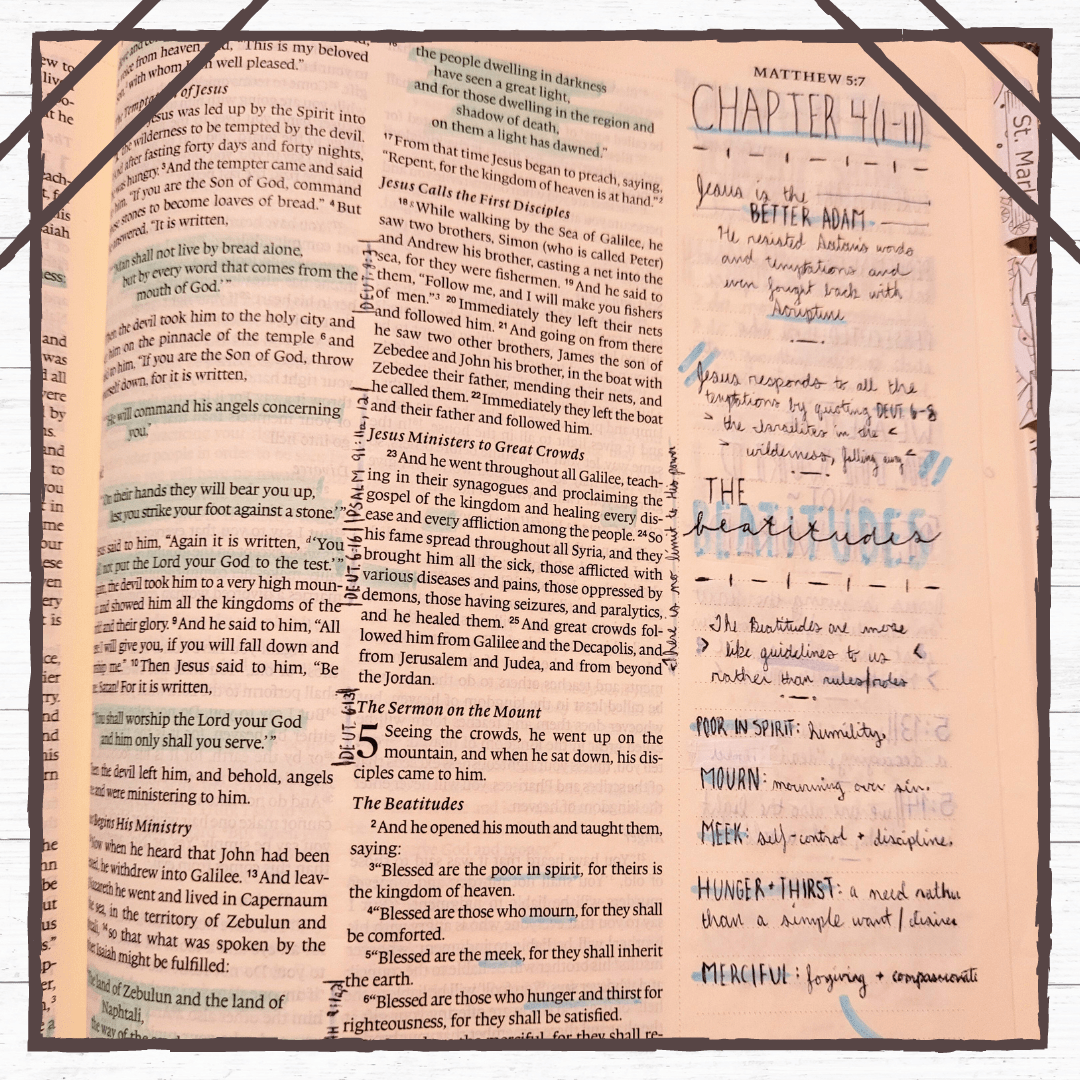 ew to
live
o-
t he
each-
t, fo
his
aiah
ness:
and
was
d all
were
l by
ns.
and
to
you
t in
me
our
ese
ven
ery
t is
ce,
ier
ry.
nd
no
his
rn
he
hn
be
ut
us
s.”
p-
er,
n, ³
e a
voice from heaven said, “This is my beloved
with whom I am well pleased.”
The Temptation of Jesus
Jesus was led up by the Spirit into
the wilderness to be tempted by the devil.
after fasting forty days and forty nights,
was hungry. ³And the tempter came and said
him, “If you are the Son of God, command
these stones to become loaves of bread.” ⁴But
answered, “It is written,
“‘Man shall not live by bread alone,
but by every word that comes from the
mouth of God.’”
the devil took him to the holy city and
him on the pinnacle of the temple ⁶and
to him, “If you are the Son of God, throw
yourself down, for it is written,
“‘He will command his angels concerning
you,’
“‘On their hands they will bear you up,
lest you strike your foot against a stone.’”
said to him, “Again it is written, ᵈ‘You
not put the Lord your God to the test.’”
the devil took him to a very high moun-
and showed him all the kingdoms of the
and their glory. ⁹And he said to him, “All
I will give you, if you will fall down and
me.” ¹⁰Then Jesus said to him, “Be
Satan! For it is written,
“‘You shall worship the Lord your God
and him only shall you serve.’”
the devil left him, and behold, angels
and were ministering to him.
Begins His Ministry
Now when he heard that John had been
he withdrew into Galilee. ¹³And leav-
Nazareth he went and lived in Capernaum
sea, in the territory of Zebulun and
¹⁴so that what was spoken by the
Isaiah might be fulfilled:
land of Zebulun and the land of
Naphtali,
the way of the
DEUT. 8:3
PSALM 91:11a, 12
DEUT. 6:16
DEUT. 6:13
16 the people dwelling in darkness
have seen a great light,
and for those dwelling in the region and
shadow of death,
on them a light has dawned.”
¹⁷From that time Jesus began to preach, saying,
“Repent, for the kingdom of heaven is at hand.”²
Jesus Calls the First Disciples
¹⁸ᵍWhile walking by the Sea of Galilee, he
saw two brothers, Simon (who is called Peter)
and Andrew his brother, casting a net into the
sea, for they were fishermen. ¹⁹And he said to
them, “Follow me, and I will make you fishers
of men.”³ ²⁰Immediately they left their nets
and followed him. ²¹And going on from there
he saw two other brothers, James the son of
Zebedee and John his brother, in the boat with
Zebedee their father, mending their nets, and
he called them. ²²Immediately they left the boat
and their father and followed him.
Jesus Ministers to Great Crowds
²³And he went throughout all Galilee, teach-
ing in their synagogues and proclaiming the
gospel of the kingdom and healing every dis-
ease and every affliction among the people. ²⁴So
his fame spread throughout all Syria, and they
brought him all the sick, those afflicted with
various diseases and pains, those oppressed by
demons, those having seizures, and paralytics,
and he healed them. ²⁵And great crowds fol-
lowed him from Galilee and the Decapolis, and
from Jerusalem and Judea, and from beyond
the Jordan.
The Sermon on the Mount
5 Seeing the crowds, he went up on the
mountain, and when he sat down, his dis-
ciples came to him.
The Beatitudes
²And he opened his mouth and taught them,
saying:
³“Blessed are the poor in spirit, for theirs is
the kingdom of heaven.
⁴“Blessed are those who mourn, for they shall
be comforted.
⁵“Blessed are the meek, for they shall inherit
the earth.
⁶“Blessed are those who hunger and thirst for
righteousness, for they shall be satisfied.
merciful, for they shall re-
there is no limit to His power
MATTHEW 5:7
CHAPTER 4(1-11)
Jesus is the
BETTER ADAM
He resisted Satan's words
and temptations and
even fought back with
Scripture
Jesus responds to all the
temptations by quoting DEUT 6-8
> the Israelites in the <
> wilderness, falling away <
THE
beatitudes
The Beatitudes are more
> like guidelines to us <
rather than rules/codes >
POOR IN SPIRIT: humility.
MOURN: mourning over sin.
MEEK: self-control + discipline.
HUNGER + THIRST: a need rather
than a simple want / desire
MERCIFUL: forgiving + compassionate
St. Mar